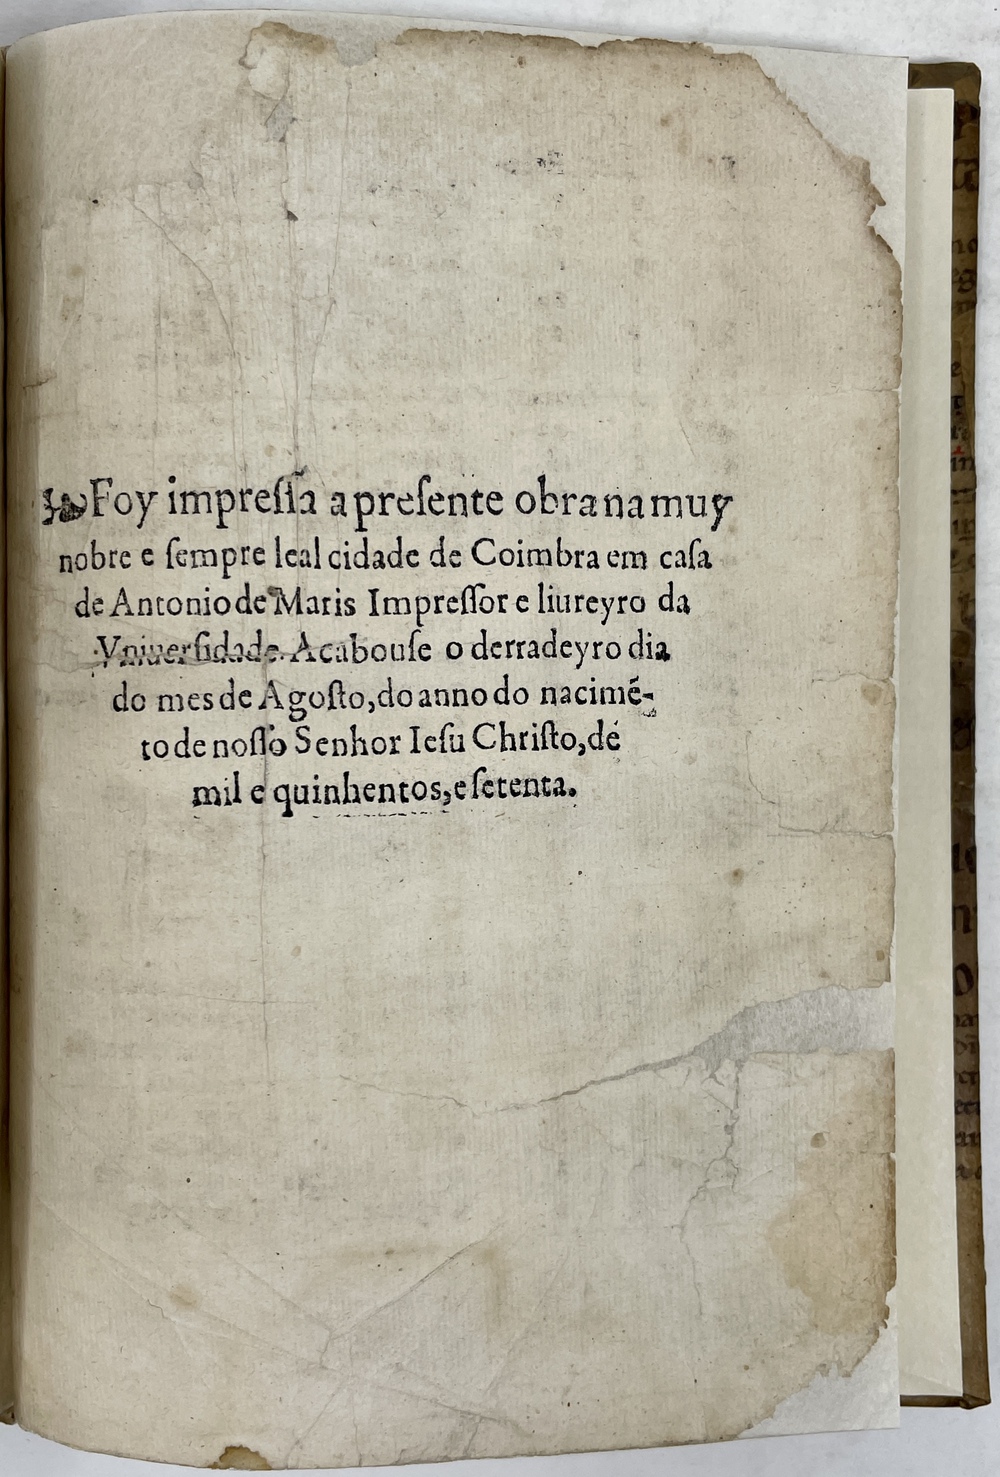 ❧Foy impreſſa a preſente obra na muy
nobre e ſempre leal cidade de Coimbra em caſa
de Antonio de Maris Impreſſor e liureyro da
Vniuerſidade. Acabouſe o derradeyro dia
do mes de Agoſto, do anno do nacimẽ-
to de noſſo Senhor Ieſu Chriſto, de
mil e quinhentos, e ſetenta.